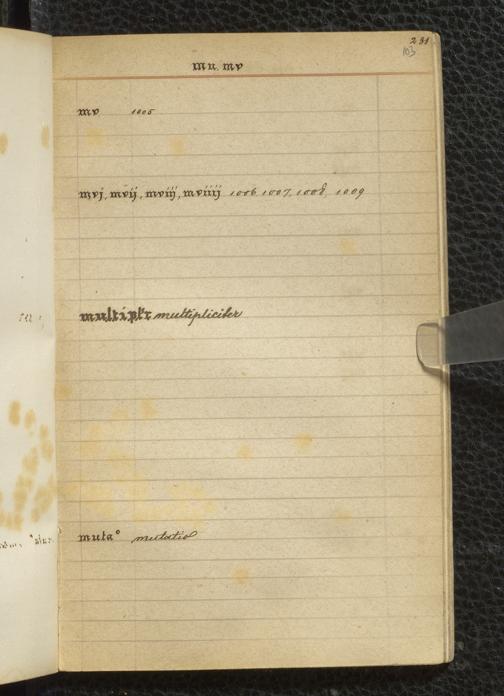 231
103
mu. mv
mv 1005
mvj, mvij, mviij, mviiij 1006 1007, 1008, 1009
multiplr multipliciter
muta° mutatio